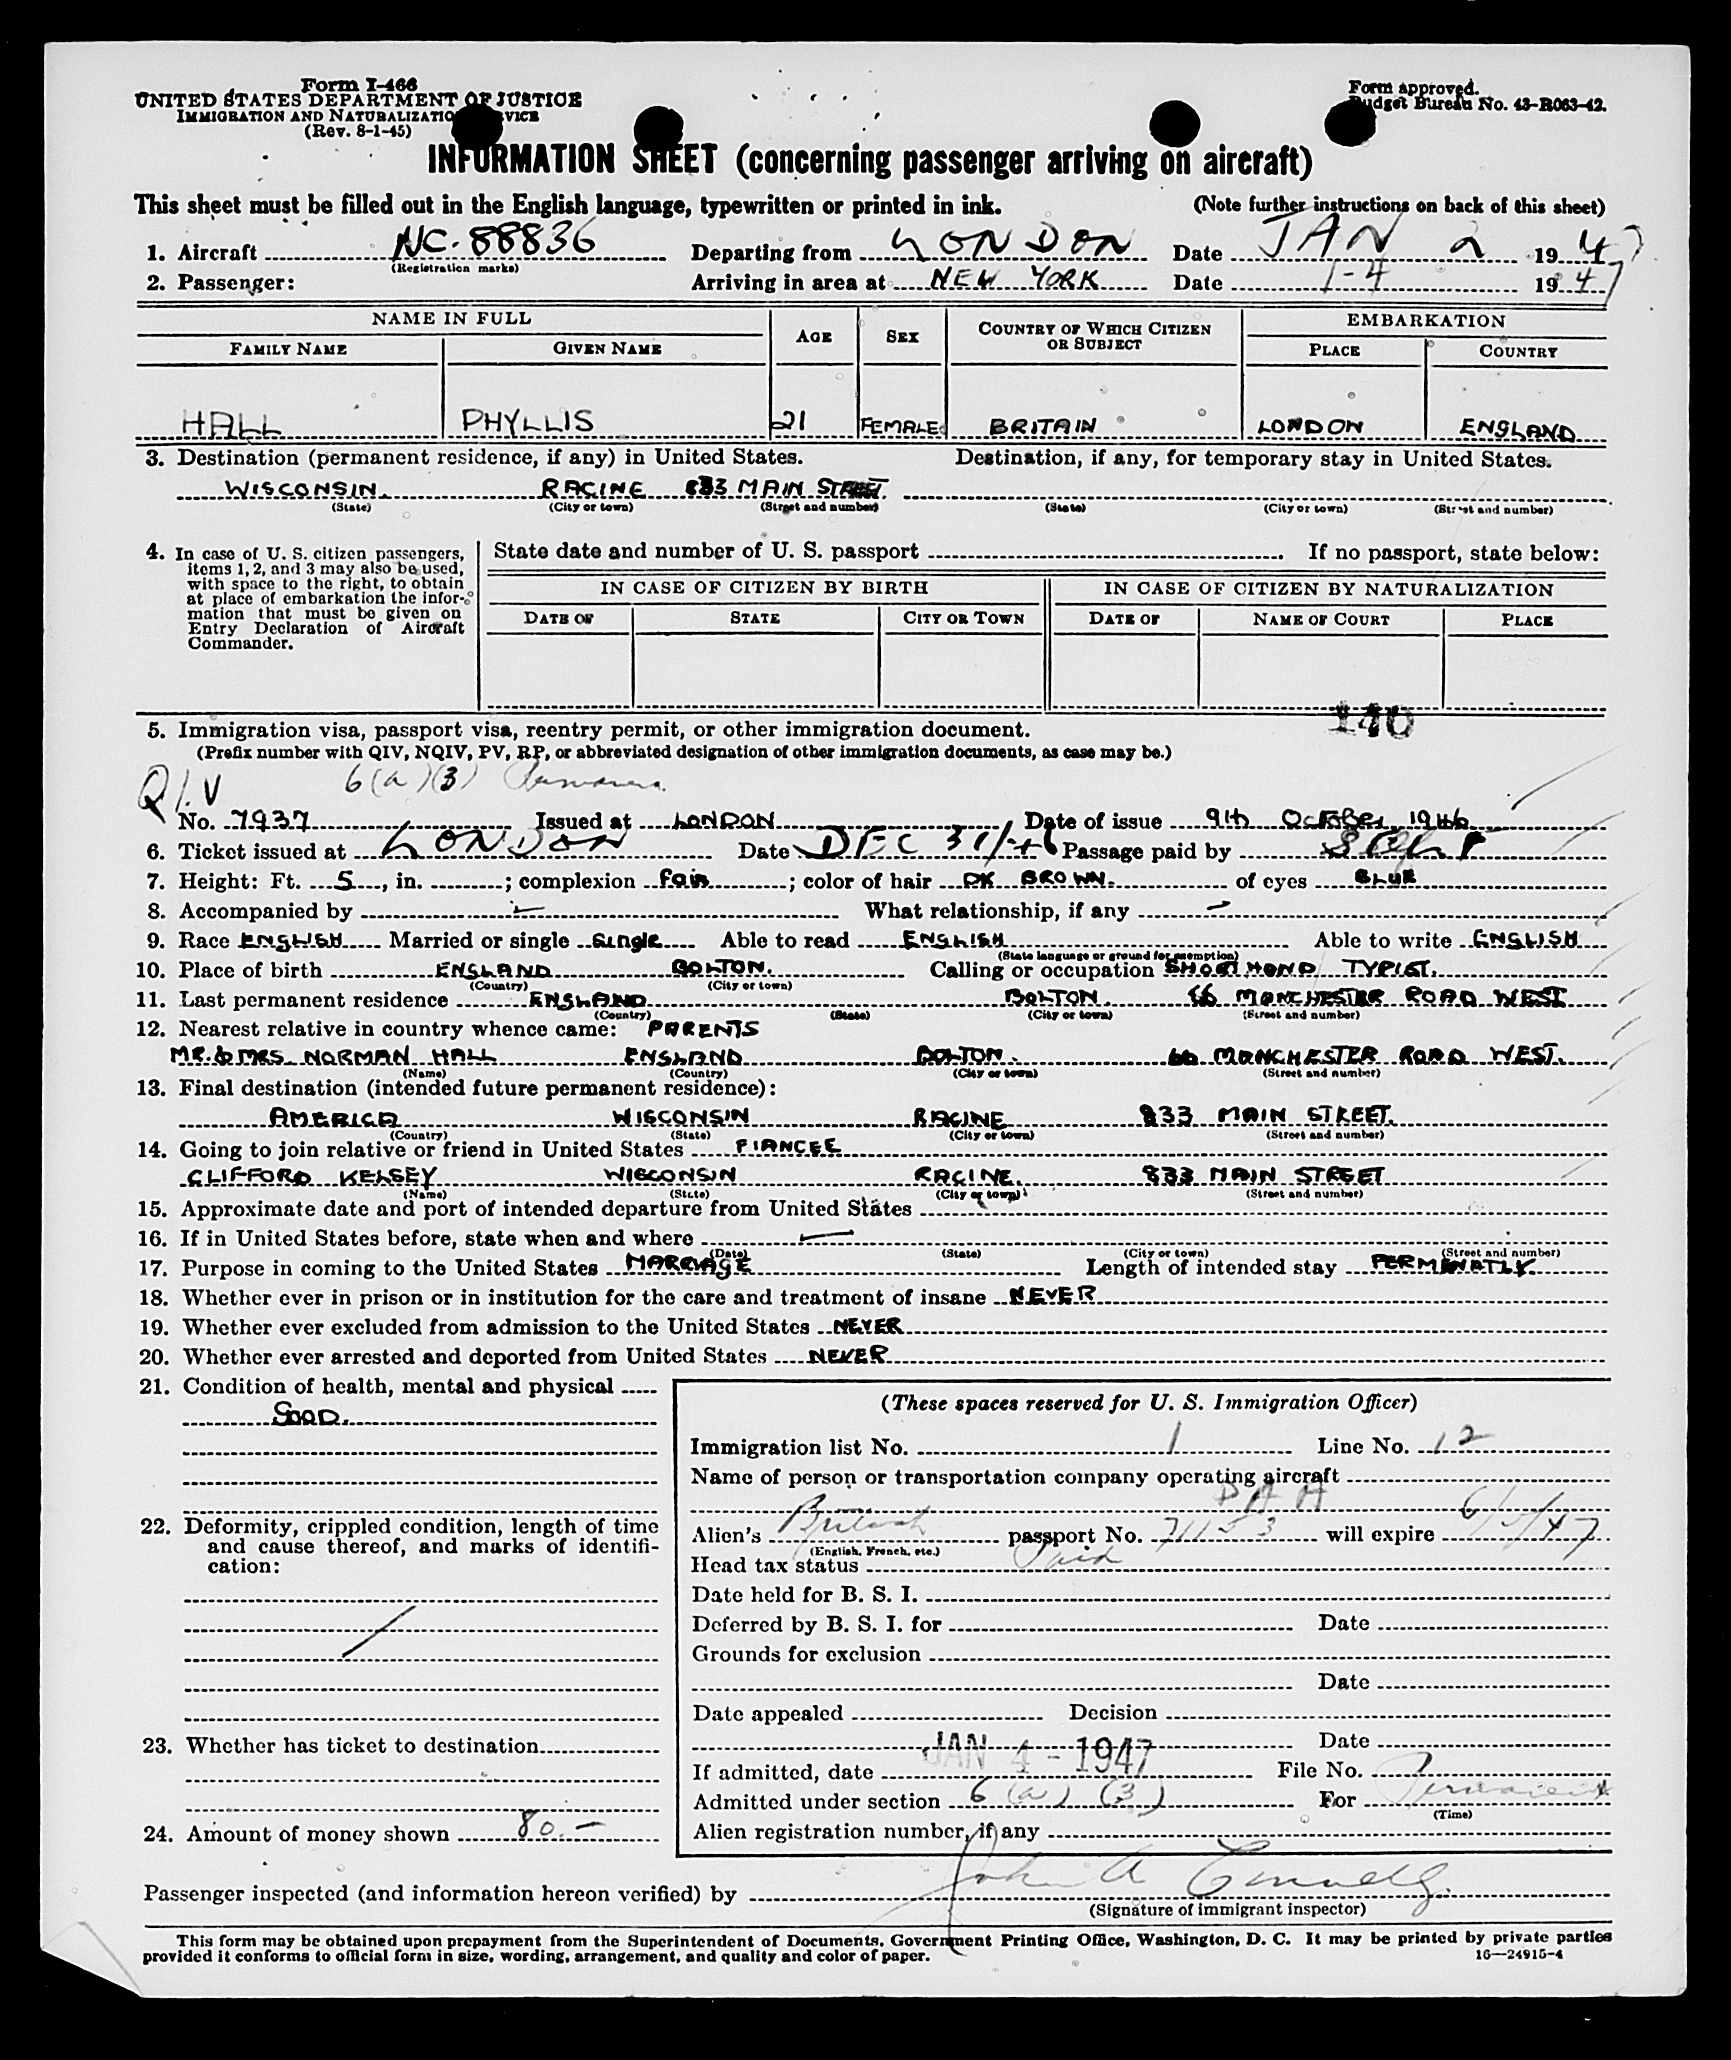 Form I-466
UNITED STATES DEPARTMENT OF JUSTICE
IMMIGRATION AND NATURALIZATION SERVICE
(Rev. 8-1-45)
Form approved.
Budget Bureau No. 43-R063-42.
INFORMATION SHEET (concerning passenger arriving on aircraft)
This sheet must be filled out in the English language, typewritten or printed in ink. (Note further instructions on back of this sheet)
1. Aircraft NC-88836 Departing from LONDON Date JAN 2 1947
(Registration marks)
2. Passenger: Arriving in area at NEW YORK Date 1-4 1947
NAME IN FULL AGE SEX COUNTRY OF WHICH CITIZEN OR SUBJECT EMBARKATION
FAMILY NAME GIVEN NAME PLACE COUNTRY
HALL PHYLLIS 21 FEMALE BRITAIN LONDON ENGLAND
3. Destination (permanent residence, if any) in United States. Destination, if any, for temporary stay in United States.
WISCONSIN. RACINE 833 MAIN STREET.
(State) (City or town) (Street and number) (State) (City or town) (Street and number)
4. In case of U. S. citizen passengers, items 1, 2, and 3 may also be used, with space to the right, to obtain at place of embarkation the information that must be given on Entry Declaration of Aircraft Commander.
State date and number of U. S. passport If no passport, state below:
IN CASE OF CITIZEN BY BIRTH IN CASE OF CITIZEN BY NATURALIZATION
DATE OF STATE CITY OR TOWN DATE OF NAME OF COURT PLACE
140
5. Immigration visa, passport visa, reentry permit, or other immigration document.
(Prefix number with QIV, NQIV, PV, RP, or abbreviated designation of other immigration documents, as case may be.)
QIV 6(a)(3)
No. 7937 Issued at LONDON Date of issue 9th OCTOBER, 1946
6. Ticket issued at LONDON Date DEC 31/46 Passage paid by SELF
7. Height: Ft. 5, in. ; complexion Fair; color of hair DK BROWN. of eyes BLUE
8. Accompanied by – What relationship, if any –
9. Race ENGLISH Married or single Single Able to read ENGLISH Able to write ENGLISH
(State language or ground for exemption)
10. Place of birth ENGLAND BOLTON. Calling or occupation SHORTHAND TYPIST.
(Country) (City or town)
11. Last permanent residence ENGLAND BOLTON. 66 MANCHESTER ROAD WEST
(Country) (State) (City or town) (Street and number)
12. Nearest relative in country whence came: PARENTS
MR. & MRS. NORMAN HALL ENGLAND BOLTON. 66 MANCHESTER ROAD WEST.
(Name) (Country) (City or town) (Street and number)
13. Final destination (intended future permanent residence):
AMERICA WISCONSIN RACINE 833 MAIN STREET.
(Country) (State) (City or town) (Street and number)
14. Going to join relative or friend in United States FIANCEE
CLIFFORD KELSEY WISCONSIN RACINE. 833 MAIN STREET
(Name) (State) (City or town) (Street and number)
15. Approximate date and port of intended departure from United States
16. If in United States before, state when and where –
(Date) (State) (City or town) (Street and number)
17. Purpose in coming to the United States MARRIAGE Length of intended stay PERMENATLY.
18. Whether ever in prison or in institution for the care and treatment of insane NEVER
19. Whether ever excluded from admission to the United States NEVER
20. Whether ever arrested and deported from United States NEVER
21. Condition of health, mental and physical
GOOD.
22. Deformity, crippled condition, length of time and cause thereof, and marks of identification:
/
23. Whether has ticket to destination
24. Amount of money shown 80.–
(These spaces reserved for U. S. Immigration Officer)
Immigration list No. 1 Line No. 12
Name of person or transportation company operating aircraft
PAA
Alien's British passport No. 71153 will expire 6/5/47
(English, French, etc.)
Head tax status Paid
Date held for B. S. I.
Deferred by B. S. I. for Date
Grounds for exclusion
Date
Date appealed Decision
Date
If admitted, date JAN 4 - 1947 File No.
Admitted under section 6(a)(3) For Permanent
(Time)
Alien registration number, if any
Passenger inspected (and information hereon verified) by John A
(Signature of immigrant inspector)
This form may be obtained upon prepayment from the Superintendent of Documents, Government Printing Office, Washington, D. C. It may be printed by private parties
provided it conforms to official form in size, wording, arrangement, and quality and color of paper. 16—24915-4